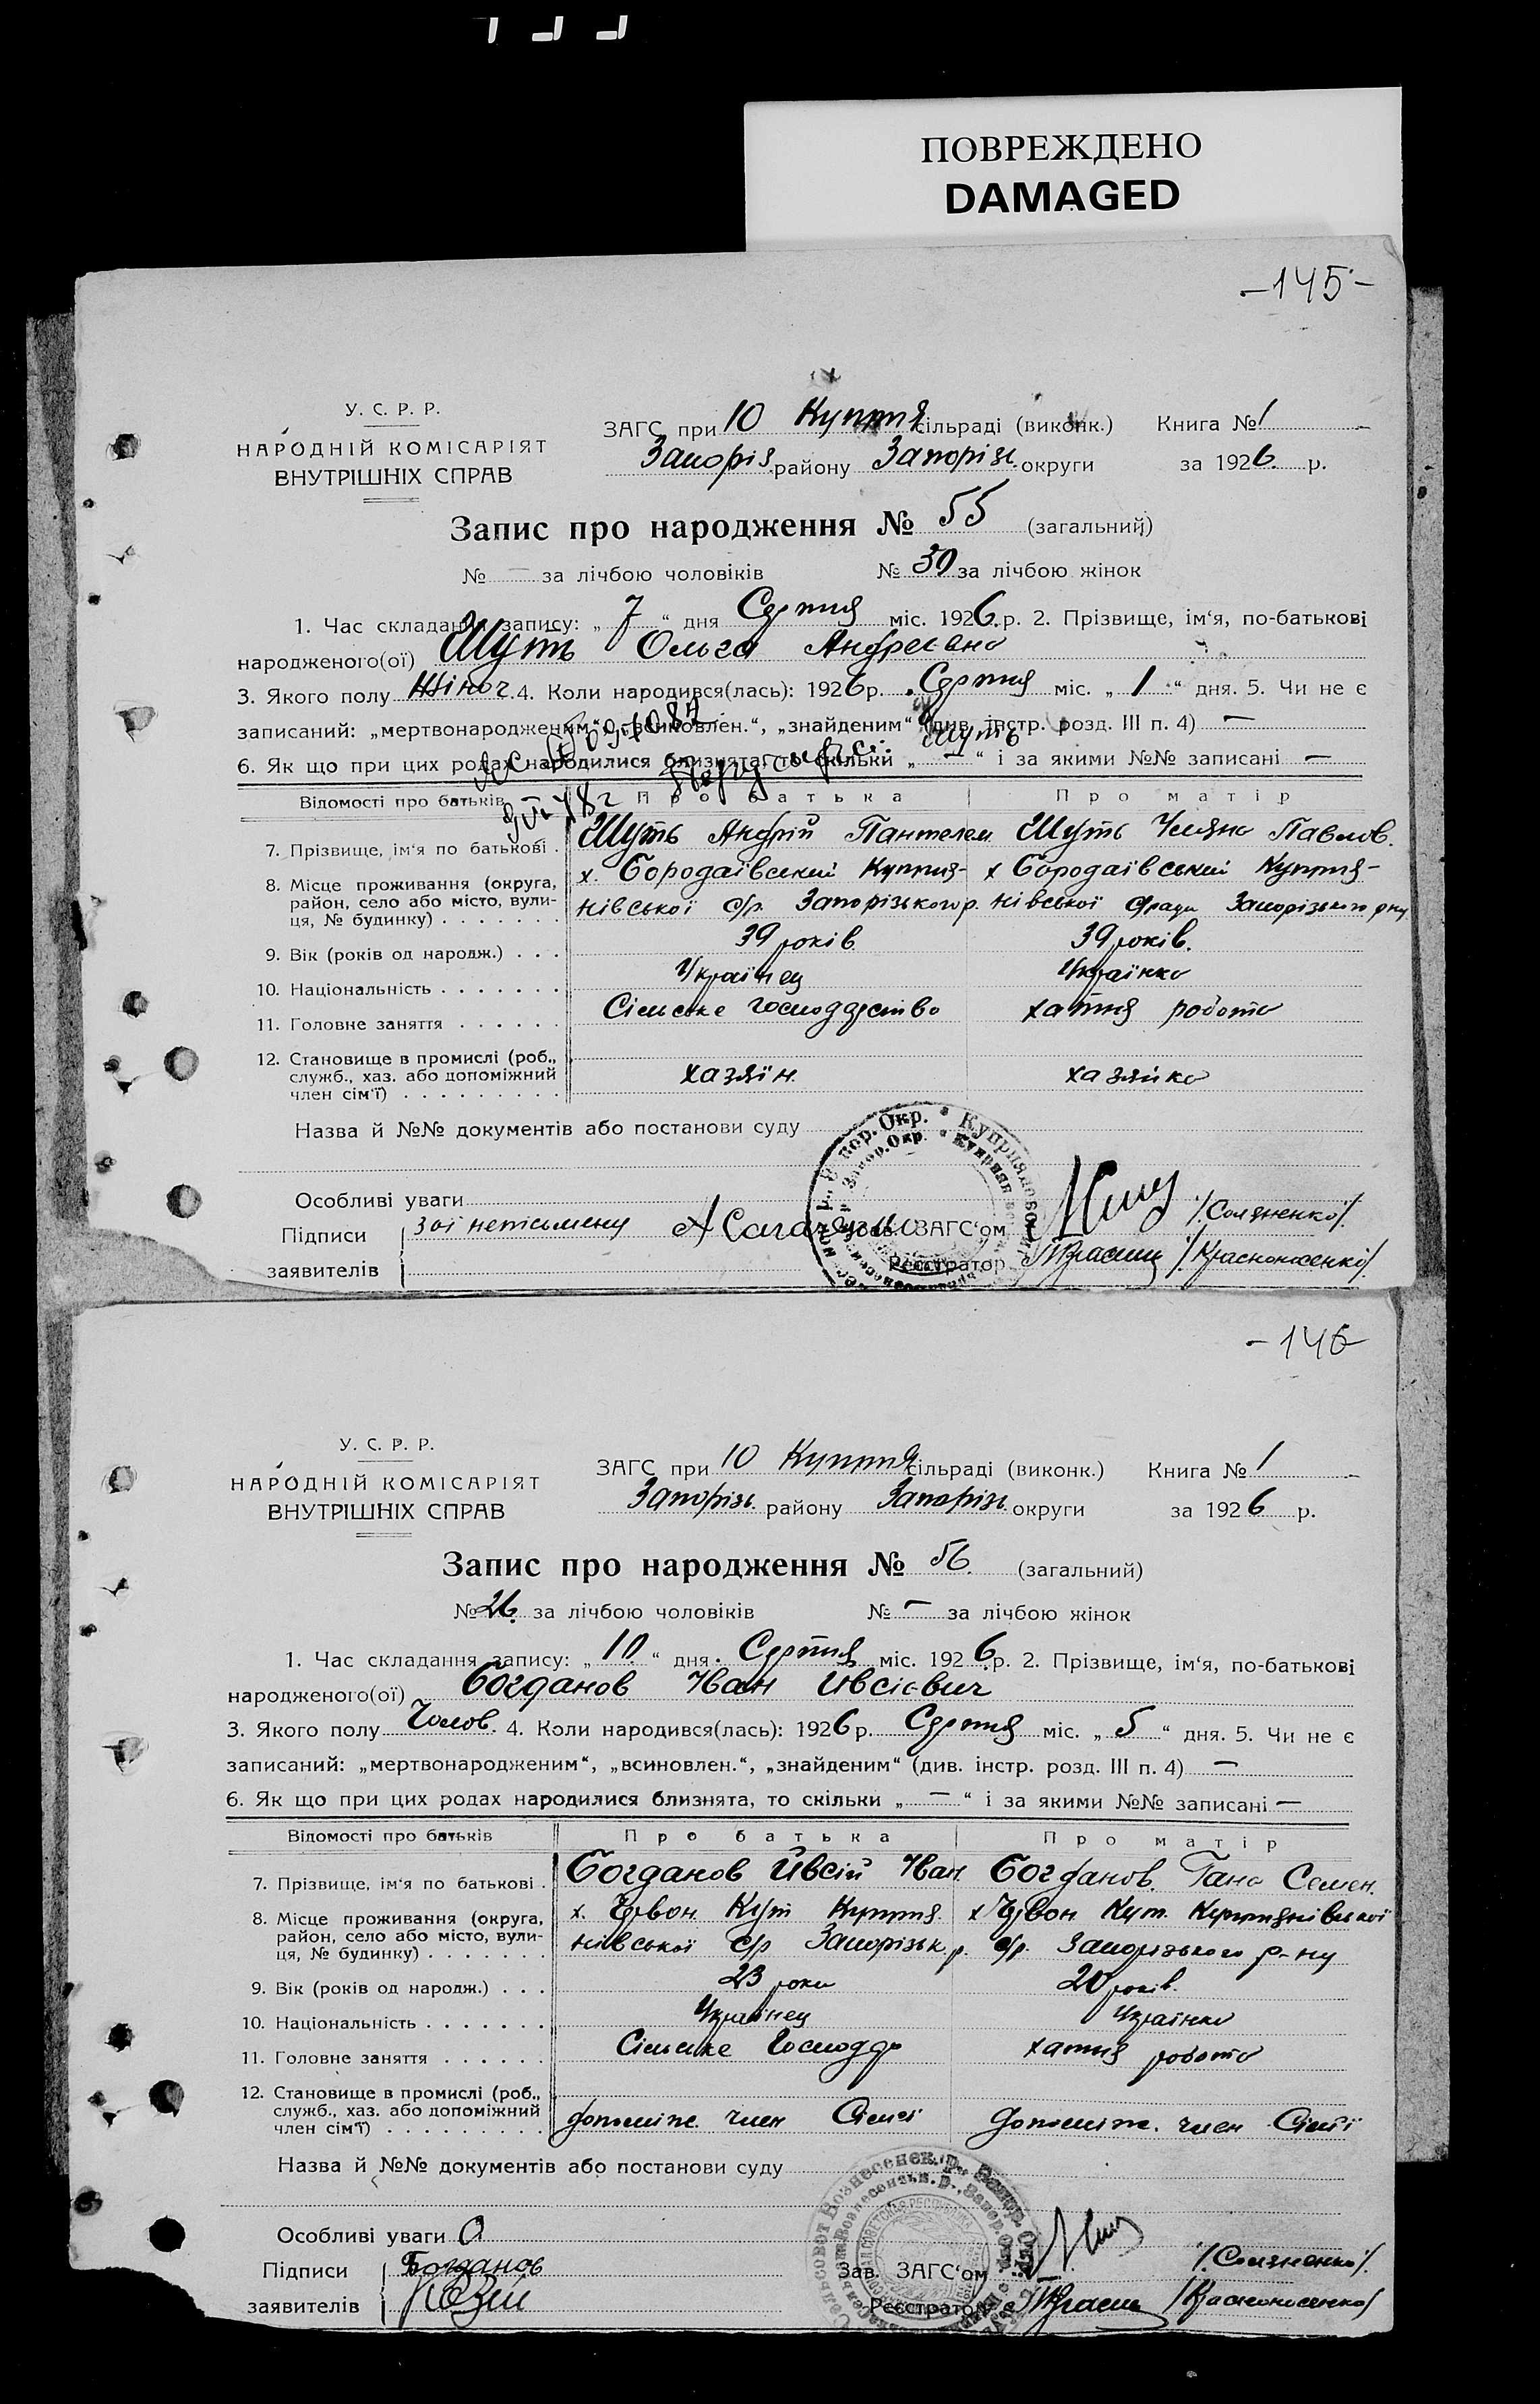 ПОВРЕЖДЕНО
DAMAGED
–145–
У. С. Р. Р.
НАРОДНІЙ КОМІСАРІЯТ
ВНУТРІШНІХ СПРАВ
ЗАГС при 10 Куптя сільраді (виконк.) Книга № 1
Запоріз. району Запорізь. округи за 1926 р.
Запис про народження № 55 (загальний)
№ — за лічбою чоловіків № 30 за лічбою жінок
1. Час складання запису: „ 7 “ дня Серпня міс. 1926 р. 2. Прізвище, ім‘я, по-батькові
народженого(ої) Шуть Ольга Андреевна
3. Якого полу Жіноч. 4. Коли народився(лась): 1926 р. Серпня міс. „ 1 “ дня. 5. Чи не є
записаний: „мертвонародженим“, „всиновлен.“, „знайденим“ (див. інстр. розд. III п. 4) —
6. Як що при цих родах народилися близнята, то скільки „ — “ і за якими №№ записані —
Шуть
Відомості про батьків Про батька Про матір
7. Прізвище, ім‘я по батькові . Шуть Андрій Пантелем. Шуть Уляна Павлов.
8. Місце проживання (округа, х. Бородаївський Куптия- х Бородаївський Куптия-
район, село або місто, вули- нівської с/р. Запорізького р. нівської с/ради Запорізького р-ну
ця, № будинку) . . . . . . .
9. Вік (років од народж.) . . . 39 років 39 років.
10. Національність . . . . . . . Українец Українка
11. Головне заняття . . . . . . Сільське господарство хатня робота
12. Становище в промислі (роб., хазяїн. хазяйка
служб., хаз. або допоміжний
член сім‘ї) . . . . . . . . .
Назва й №№ документів або постанови суду
Особливі уваги
Підписи за неписьмену Зав. ЗАГС‘ом /Солзненко/.
заявителів Реєстратор /Красноносенко/.
–146
У. С. Р. Р.
НАРОДНІЙ КОМІСАРІЯТ
ВНУТРІШНІХ СПРАВ
ЗАГС при 10 Куптя сільраді (виконк.) Книга № 1
Запорізь. району Запорізь. округи за 1926 р.
Запис про народження № 56. (загальний)
№ 26. за лічбою чоловіків № — за лічбою жінок
1. Час складання запису: „ 10 “ дня Серпня міс. 1926 р. 2. Прізвище, ім‘я, по-батькові
народженого(ої) Богданов Іван Ивсієвич
3. Якого полу Чолов. 4. Коли народився(лась): 1926 р. Серпня міс. „ 5 “ дня. 5. Чи не є
записаний: „мертвонародженим“, „всиновлен.“, „знайденим“ (див. інстр. розд. III п. 4) —
6. Як що при цих родах народилися близнята, то скільки „ — “ і за якими №№ записані —
Відомості про батьків Про батька Про матір
7. Прізвище, ім‘я по батькові . Богданов Ивсій Иван. Богданов. Гана Семен.
8. Місце проживання (округа, х. Червон. Кут Куптия- х Червон Кут. Куптиянівської
район, село або місто, вули- нівської с/р Запорізьк. р. с/р. Запорізького р-ну
ця, № будинку) . . . . . . .
9. Вік (років од народж.) . . . 23 роки 20 років.
10. Національність . . . . . . . Українец Українка
11. Головне заняття . . . . . . Сільське Господар хатня робота
12. Становище в промислі (роб., допоміж. член Сімї допоміж. член Сімї
служб., хаз. або допоміжний
член сім‘ї) . . . . . . . . .
Назва й №№ документів або постанови суду
Особливі уваги
Підписи Богданов Зав. ЗАГС‘ом /Солзненко/.
заявителів Реєстратор /Красноносенко/